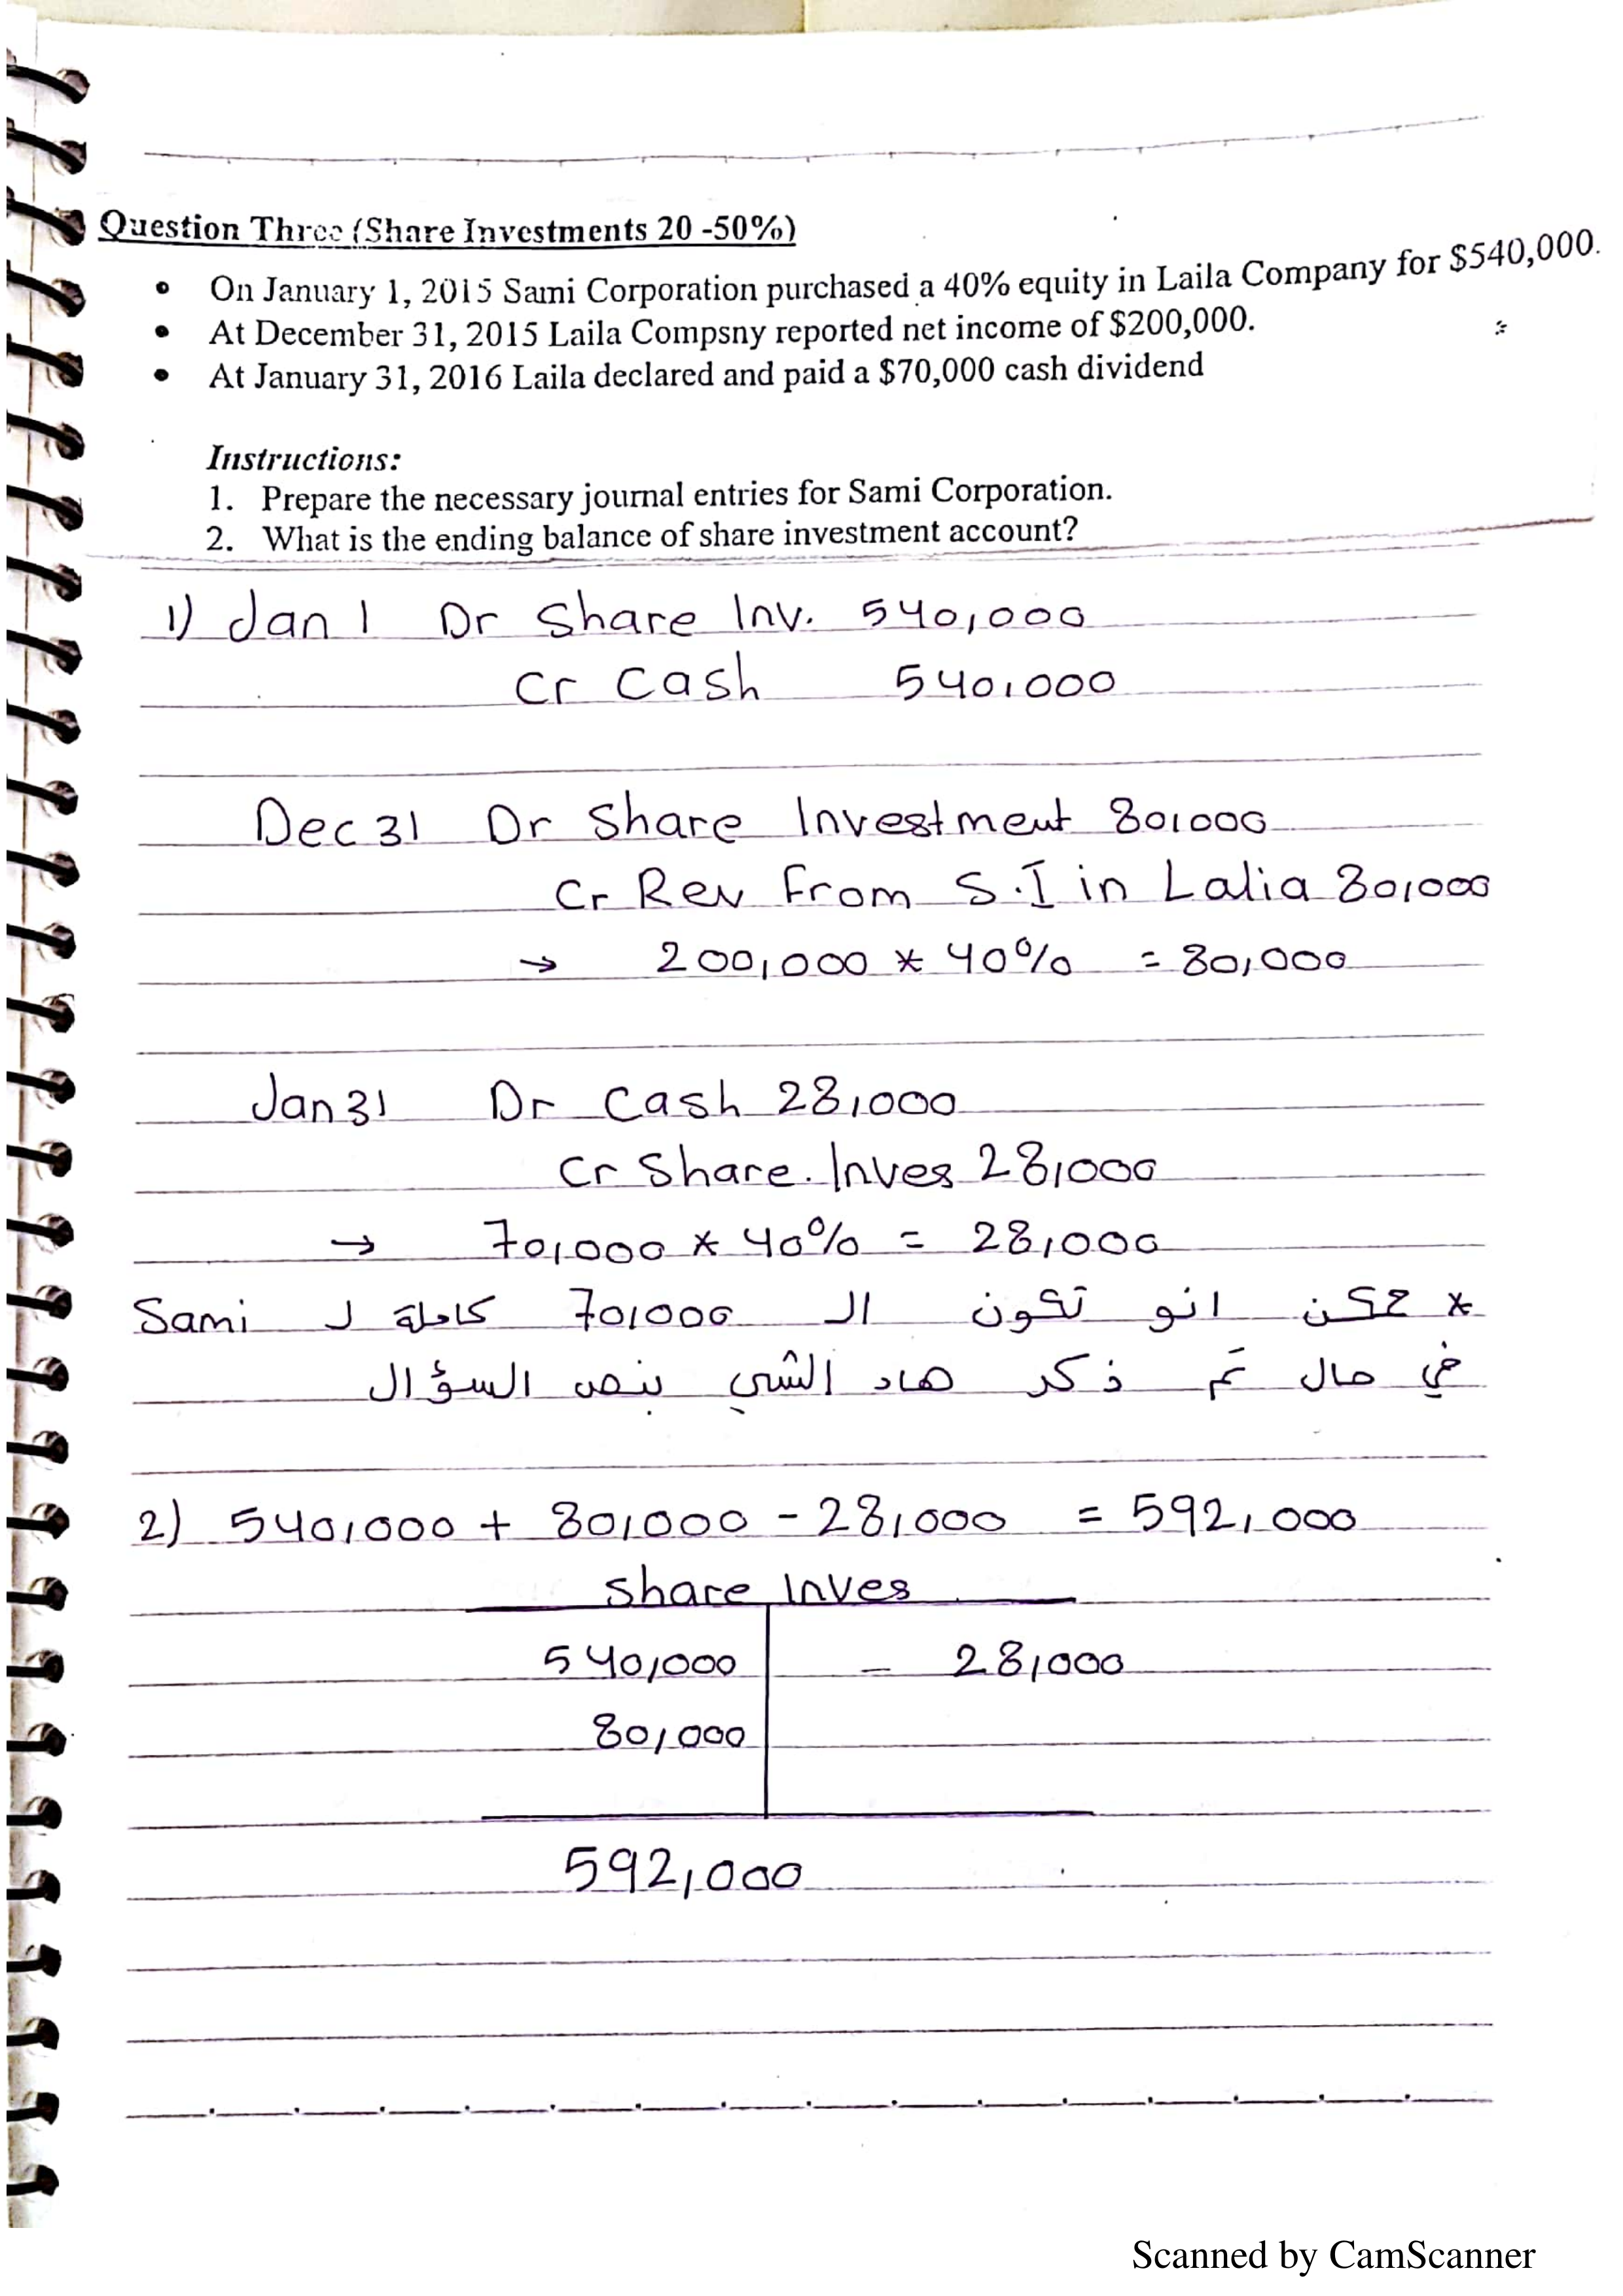 Question Three (Share Investments 20 -50%)
• On January 1, 2015 Sami Corporation purchased a 40% equity in Laila Company for $540,000.
• At December 31, 2015 Laila Compsny reported net income of $200,000.
• At January 31, 2016 Laila declared and paid a $70,000 cash dividend
Instructions:
1. Prepare the necessary journal entries for Sami Corporation.
2. What is the ending balance of share investment account?
1) Jan 1 Dr Share Inv. 540,000
Cr Cash 540,000
Dec 31 Dr Share Investment 80,000
Cr Rev From S.I in Lalia 80,000
→ 200,000 * 40% = 80,000
Jan 31 Dr Cash 28,000
Cr Share. Inves 28,000
→ 70,000 * 40% = 28,000
* ممكن انو تكون الـ 70,000 كاملة لـ Sami
في حال تم ذكر هاد الشي بنص السؤال
2) 540,000 + 80,000 - 28,000 = 592,000
Share Inves
540,000 - 28,000
80,000
592,000
Scanned by CamScanner